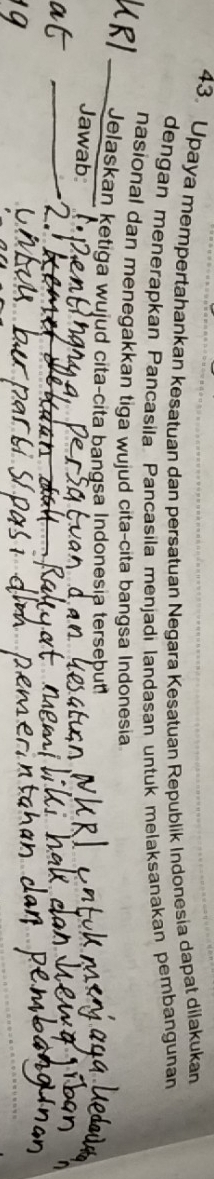 43. Upaya mempertahankan kesatuan dan persatuan Negara Kesatuan Republik Indonesia dapat dilakukan
dengan menerapkan Pancasila. Pancasila menjadi landasan untuk melaksanakan pembangunan
nasional dan menegakkan tiga wujud cita-cita bangsa Indonesia.
Jelaskan ketiga wujud cita-cita bangsa Indonesia tersebut!
Jawab: 1. Pentingnya persatuan dan kesatuan NKRI untuk menjaga
2. Rakyat memiliki hak dan
untuk burpartisipasi dlm pemerintahan dan pembangunan